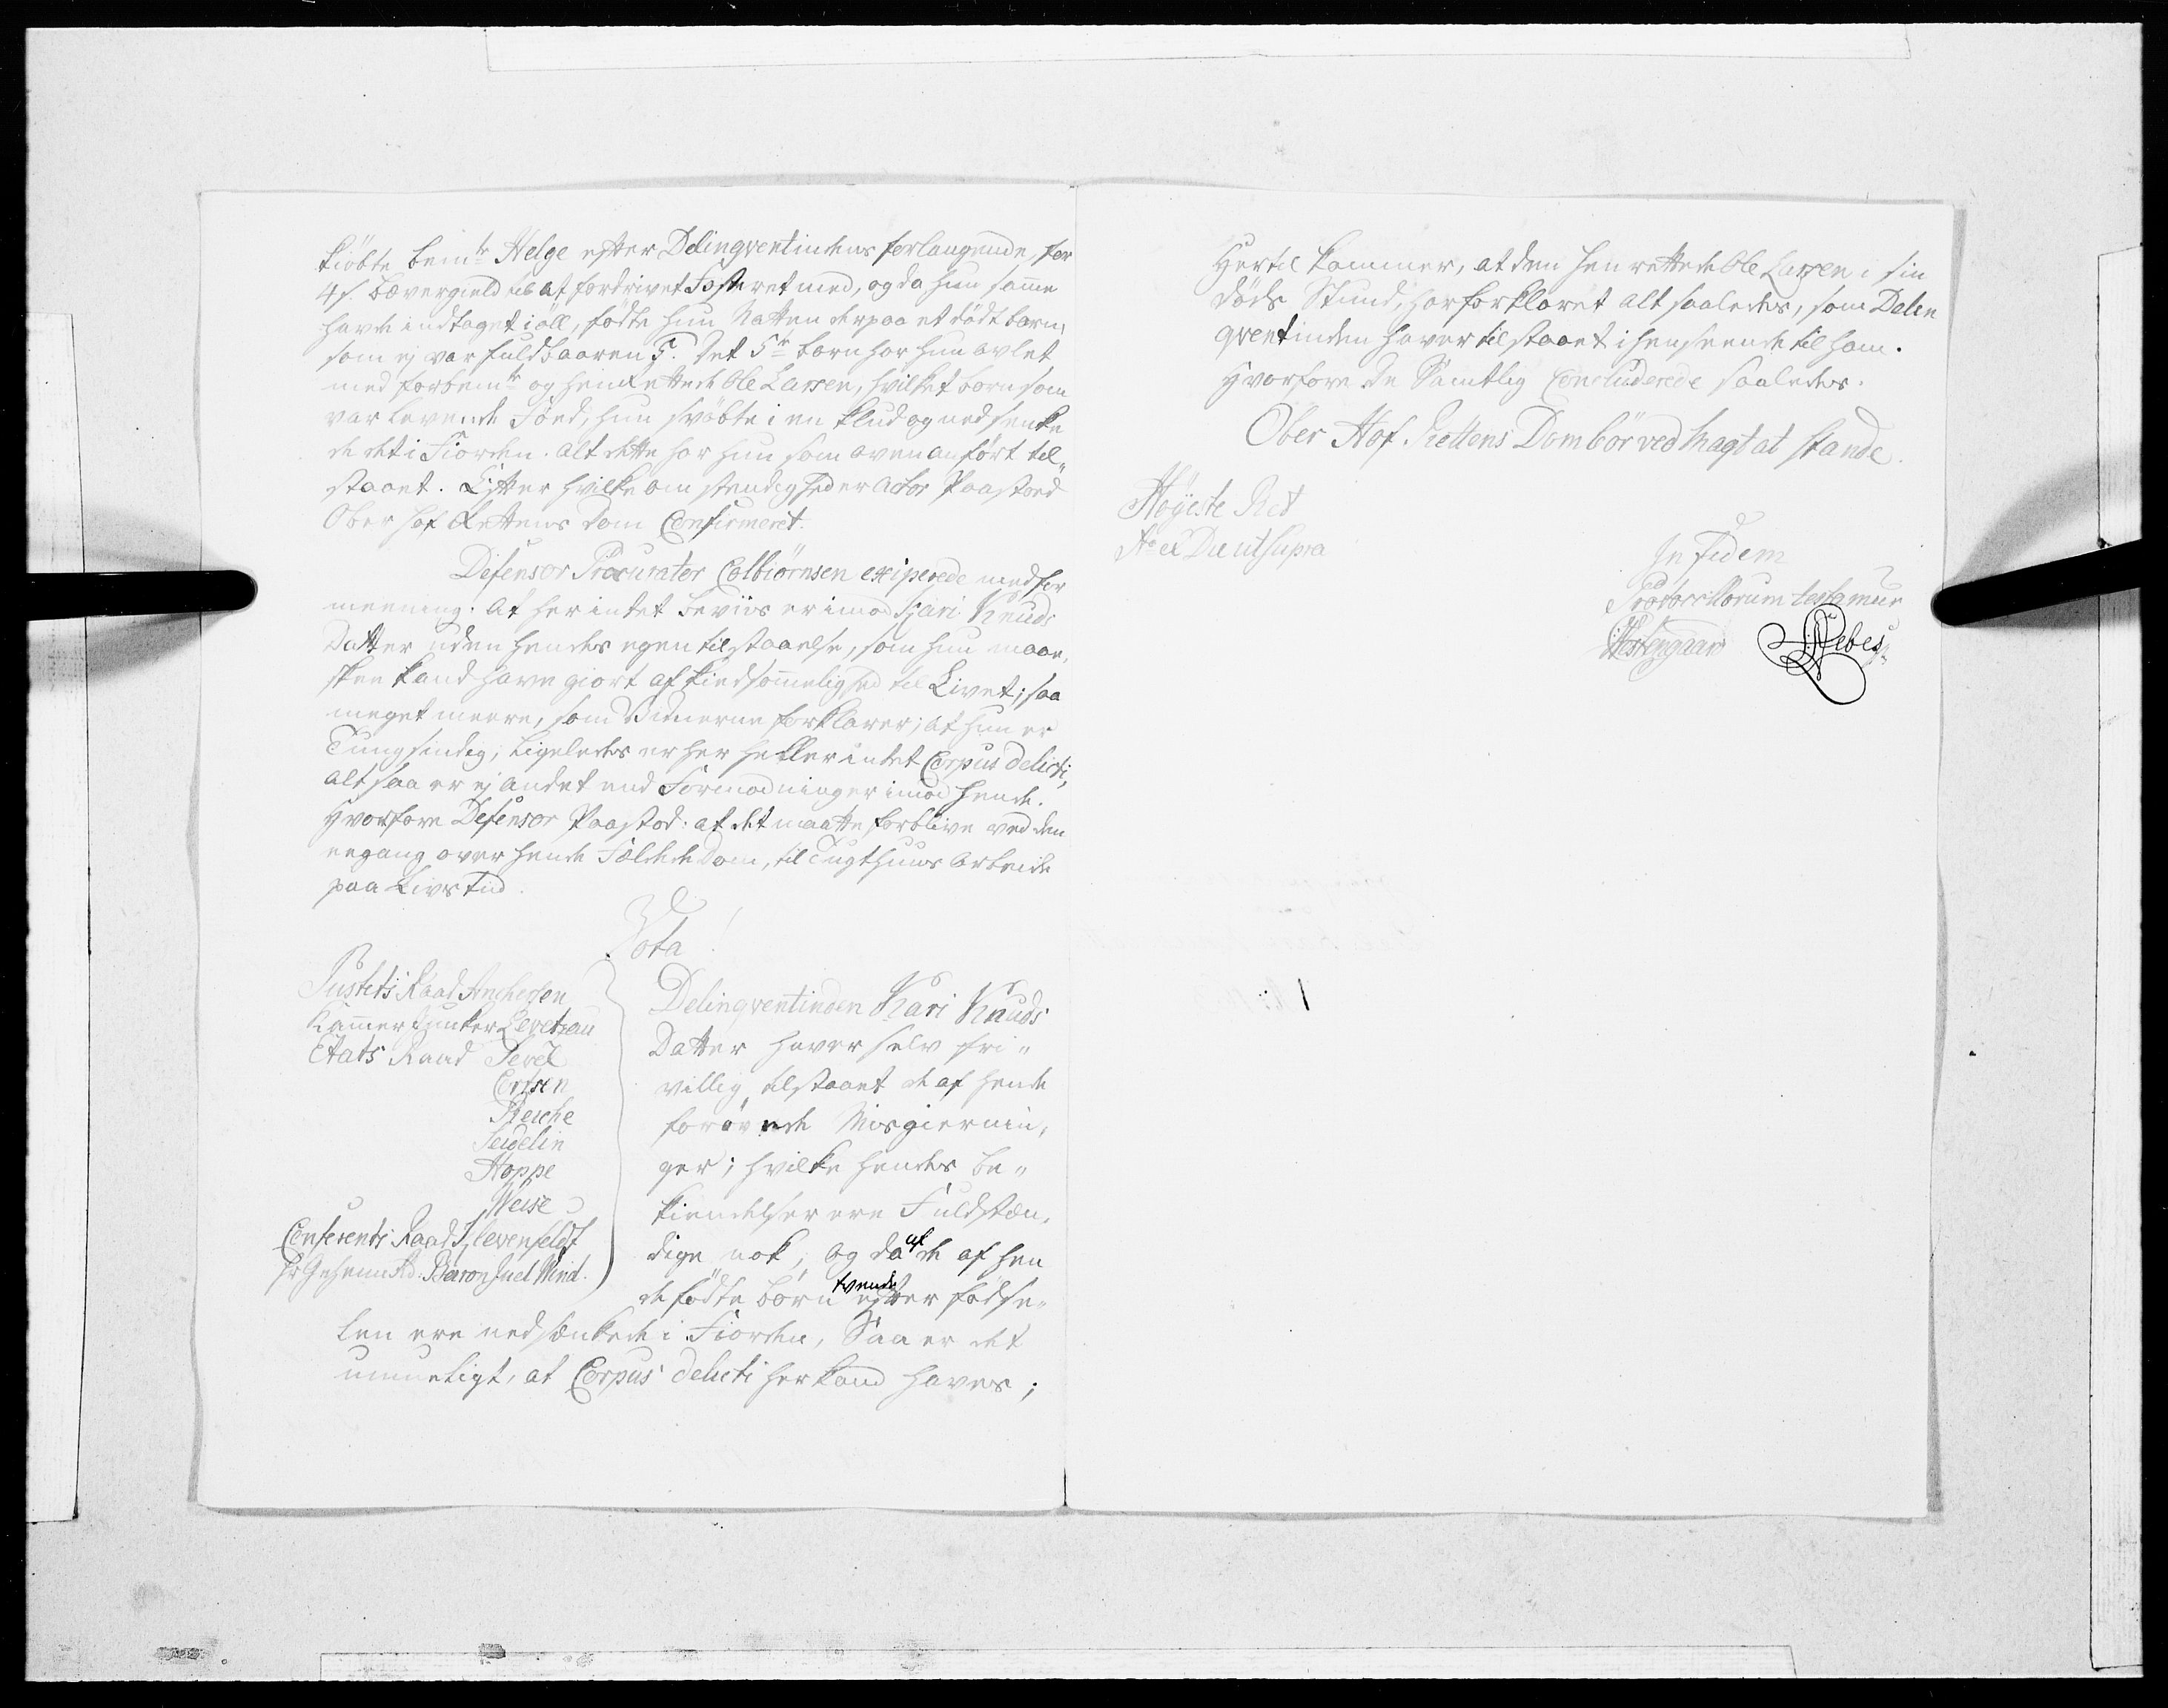 kiöbte bemte Helge efter Delinqventindens forlangende, for
4 s. Bævergield til at fordrivet Fosteret med, og da hun samme
havde indtaget i öll, födte hun Natten derpaa et dödt barn,
som ej var fuldbaaren. Det 5te barn har hun avlet
med forbemte og henrettede Ole Larsen, hvilket barn som
var levende föed, hun svöbte i en klud og nedsenke
de det i Fiorden. Alt dette har hun som oven anfört til„
staaet. Efter hvilke omstendigheder Actor Paastoed
Ober Hof Rettens Dom Confirmeret.
Defensor Procurator Colbiörnsen exciperede med for
meening: At her intet beviis er imod Kari Knuds
Datter uden hendes egen tilstaaelse, som hun maae,
skee kand have giort af kiedsommelighed til Livet; saa
meget meere, som Vidnerne forklarer; at hun er
Tungsindig, Ligeledes er her heller intet Corpus delicti,
altsaa er ej andet end Formodninger imod hende.
Hvorfore Defensor Paastod: at det maatte forblive ved den
eegang over hende Fældede Dom, til Tugthuus Arbeide
paa Livs Tiid.
Vota!
Justits Raad Anchersen
Kammer Junker Levetzau
Etats Raad Sevel
Ertsen
Reiche
Seidelin
Hoppe
Weise
Conferents Raad Klevenfeldt
Hr Geheime Rd. Baron Juel Wind.
Delinqventinden Kari Knuds
Datter haver selv fri„
villig tilstaaet de af hende
forövede Misgiernin,
ger; hvilke hendes be„
kiendelser ere Fuldstæn,
dige nok, og da af de af hen
de födte börn tvende efter födse„
len ere nedsænkede i Fiorden, Saa er det
umueligt, at Corpus delicti her kand haves;
Hertil kommer, at den henrettede Ole Larsen i sin
döds Stund, har forklaret alt saaledes, som Delin
qventinden haver tilstaaet i henseende til ham.
Hvorfore De Samtlig Concluderede saaledes.
Ober Hof-Rettens Dom bör ved Magt at stande.
Höyeste Ret
Ao et Die ut supra
In Fidem
Protocollorum testamur
Westengaard